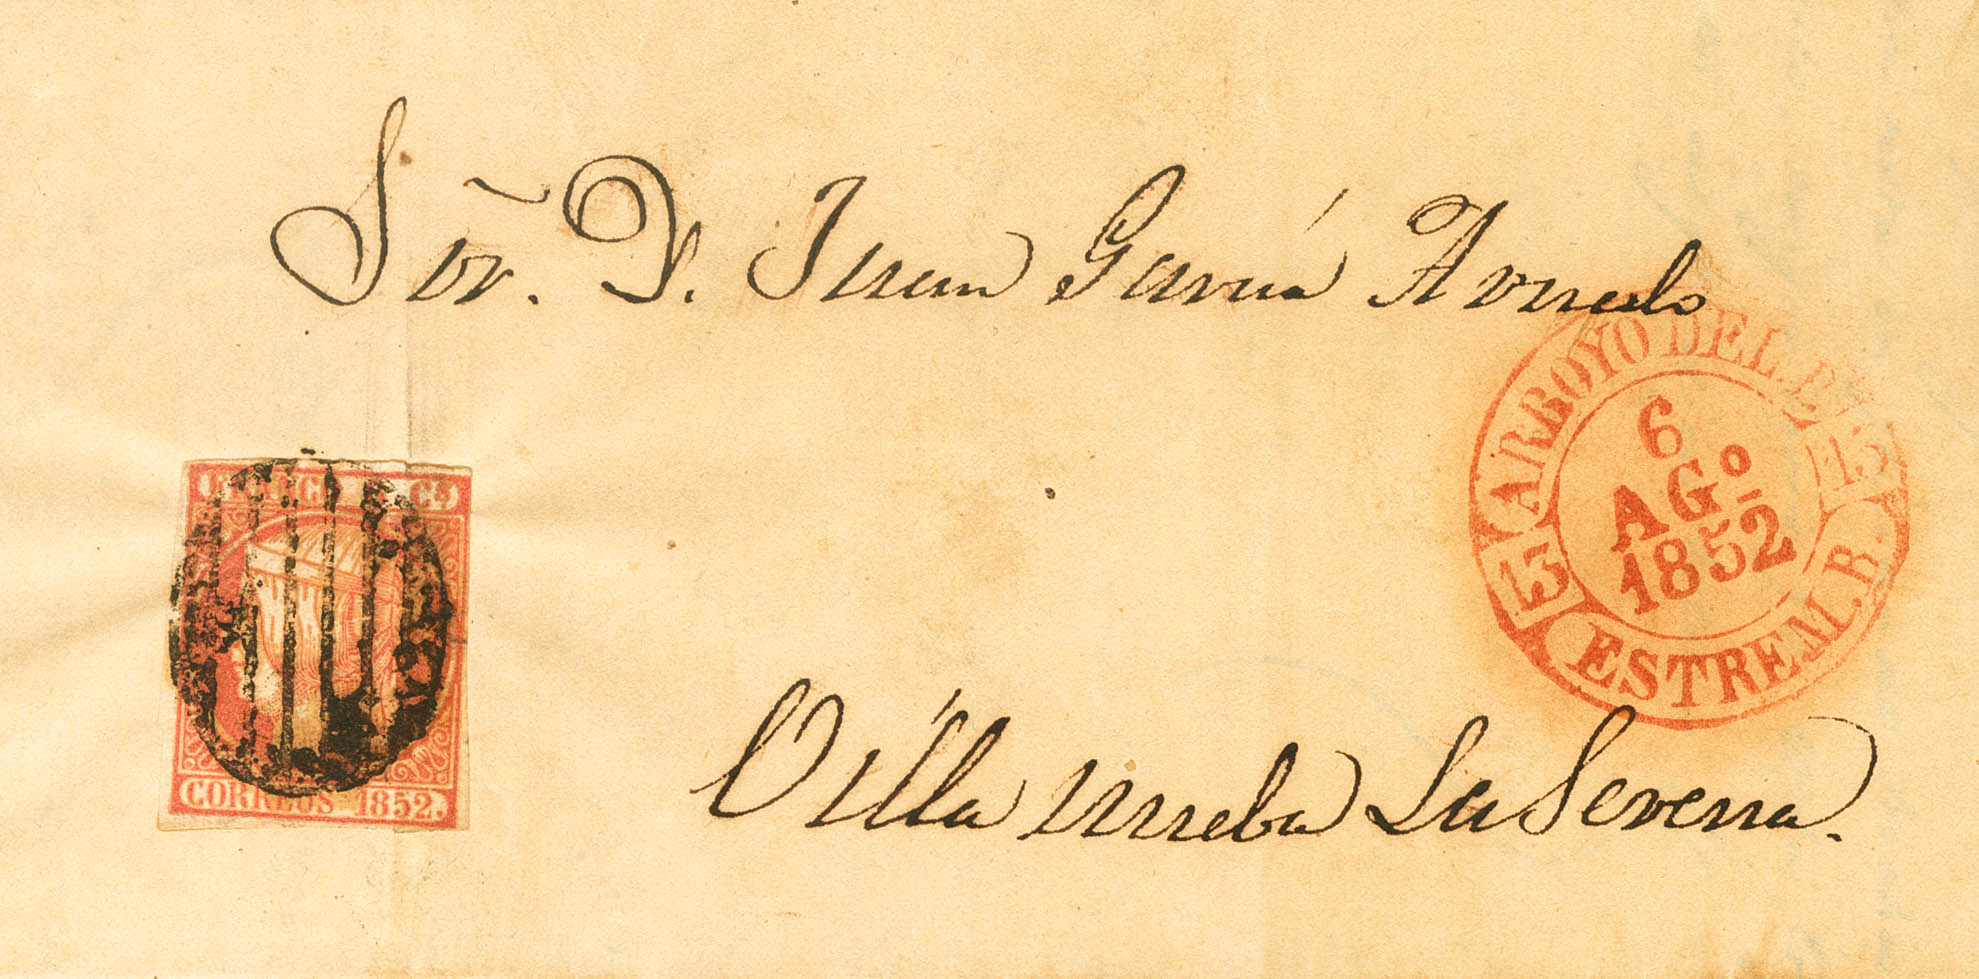 Sr̃. D. Juan García
ARROYO DEL. P.
15 15
6
AGº
1852
ESTREM. B.
CORREOS 1852.
Villa nueba La Serena.